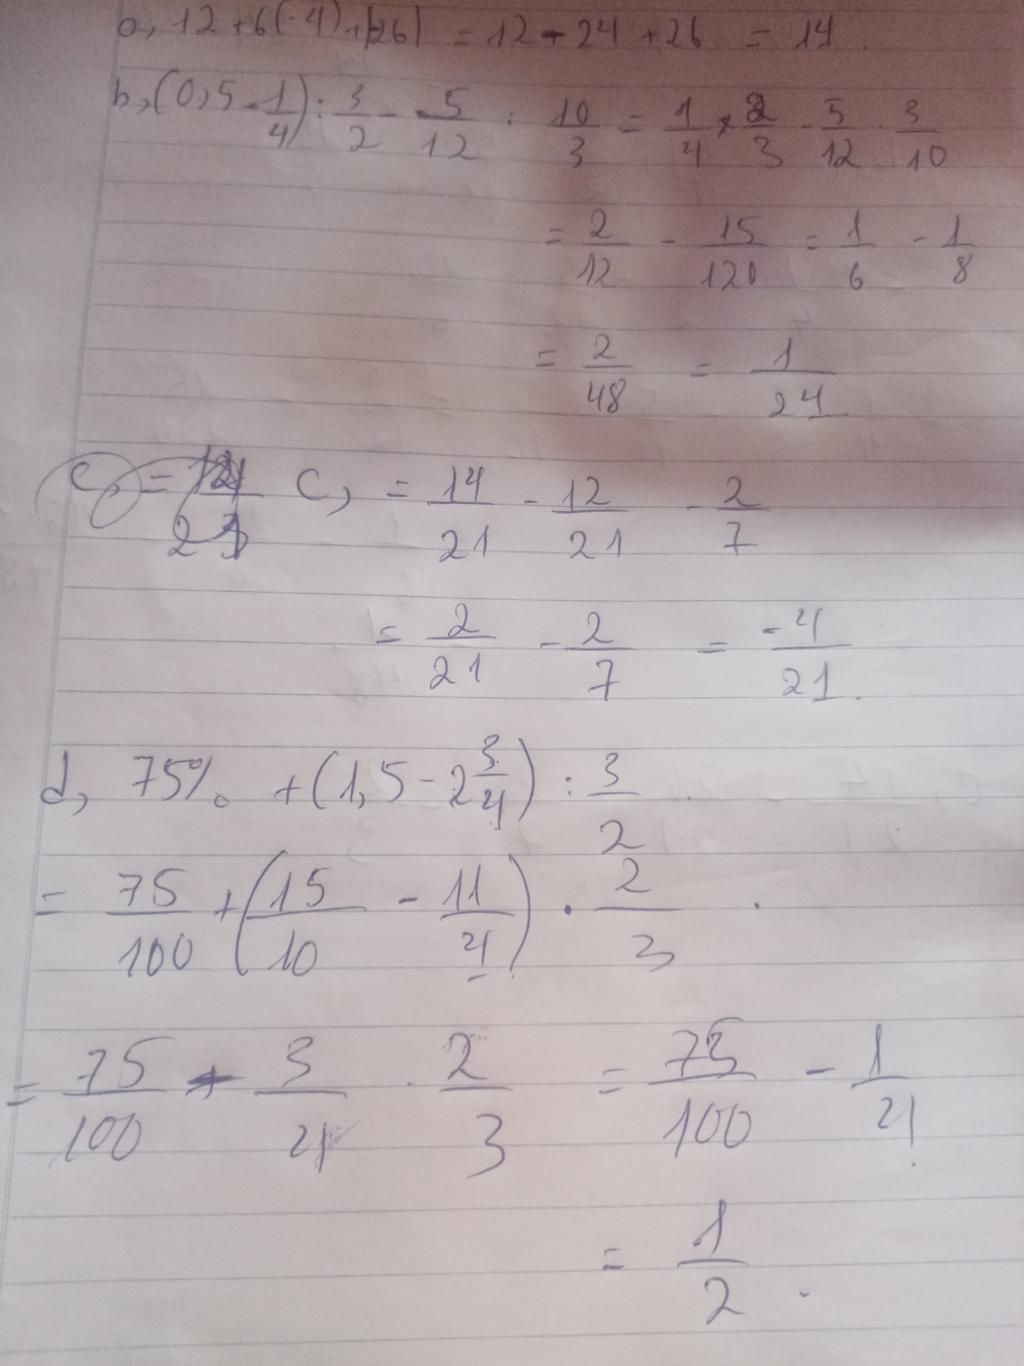 a, 12+6(-4)+|26| = 12 - 24 + 26 = 14.
b, (0,5 - 1/4) : 3/2 - 5/12 : 10/3 = 1/4 × 2/3 - 5/12 . 3/10
= 2/12 - 15/120 = 1/6 - 1/8
= 2/48 = 1/24
c, = 14/21 - 12/21 - 2/7
= 2/21 - 2/7 = -4/21.
d, 75% + (1,5 - 2 3/4) : 3/2
= 75/100 + (15/10 - 11/4) . 2/3 .
= 75/100 - 3/4 . 2/3 = 75/100 - 1/4.
= 1/2.